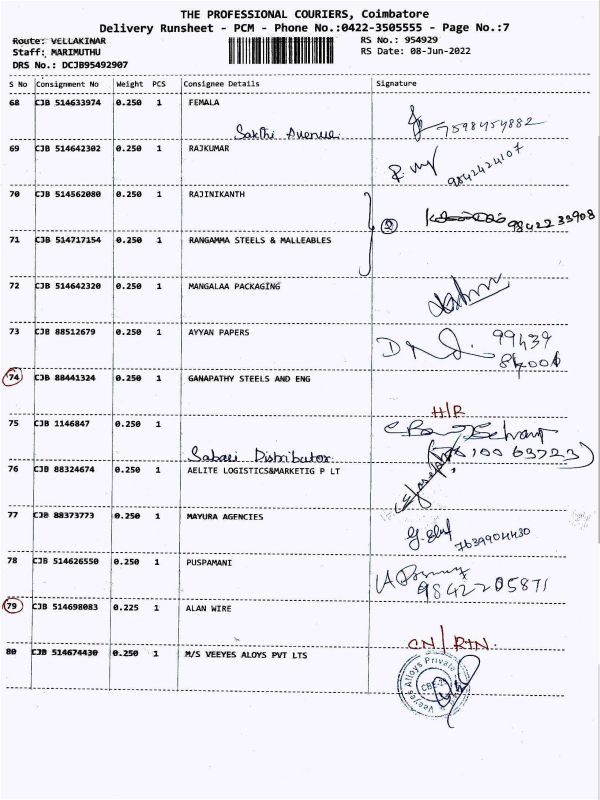 THE PROFESSIONAL COURIERS, Coimbatore
Delivery Runsheet - PCM - Phone No.:0422-3505555 - Page No.:7
Route: VELLAKINAR
RS No.: 954929
Staff: MARIMUTHU
RS Date: 08-Jun-2022
DRS No.: DCJB95492907
S No Consignment No Weight PCS Consignee Details Signature
68 CJB 514633974 0.250 1 FEMALA
Sakthi Avenue.
7598454882
69 CJB 514642302 0.250 1 RAJKUMAR
9842424107
70 CJB 514562080 0.250 1 RAJINIKANTH
2 98422 33908
71 CJB 514717154 0.250 1 RANGAMMA STEELS & MALLEABLES
72 CJB 514642320 0.250 1 MANGALAA PACKAGING
73 CJB 88512679 0.250 1 AYYAN PAPERS
99439
74 CJB 88441324 0.250 1 GANAPATHY STEELS AND ENG
H/R
75 CJB 1146847 0.250 1
Sabari Distributor.
76 CJB 88324674 0.250 1 AELITE LOGISTICS&MARKETIG P LT
77 CJB 88373773 0.250 1 MAYURA AGENCIES
7639904430
78 CJB 514626550 0.250 1 PUSPAMANI
9842205871
79 CJB 514698083 0.225 1 ALAN WIRE
CN/RTN
80 CJB 514674430 0.250 1 M/S VEEYES ALOYS PVT LTS
Veeyes Alloys Private